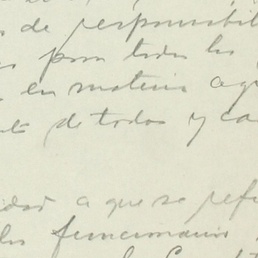 de responsibil
para todos los
en materia agr
de todos y ca
dad a que se refi
los funcionarios